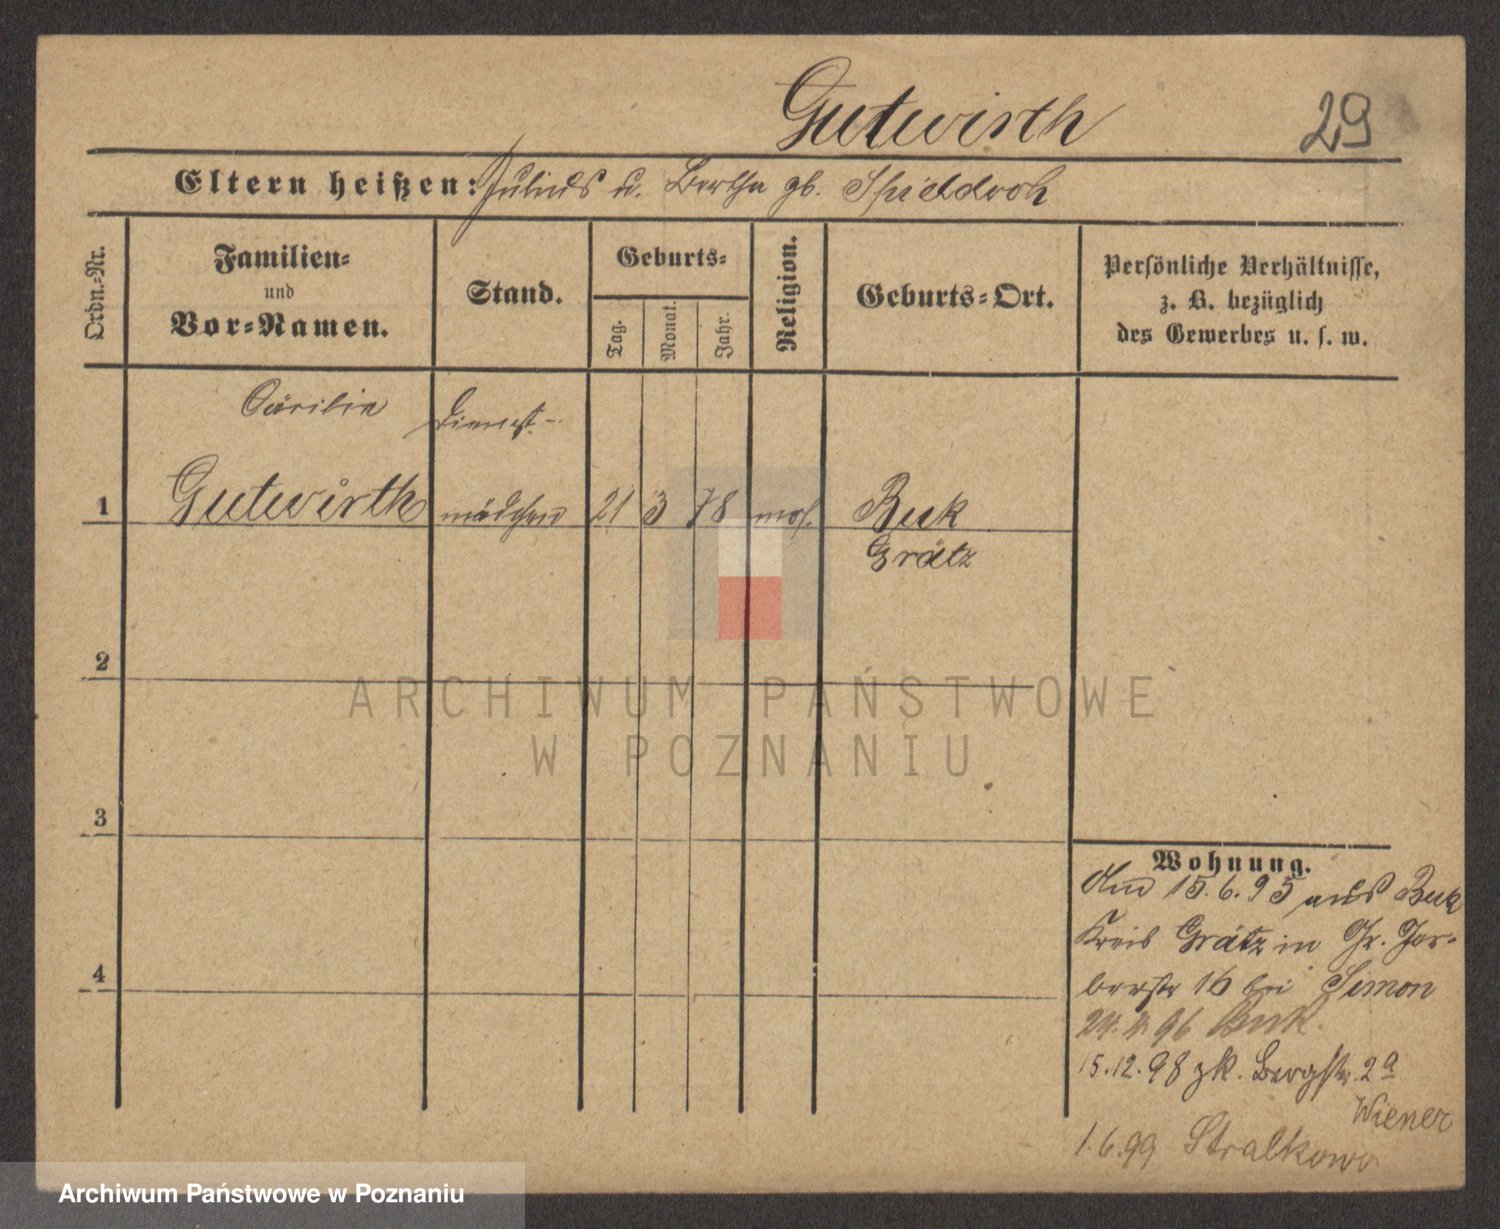 Gutwirth
29
Eltern heißen: Julius u. Bertha gb.
Ordn.-Nr.
Familien-
und
Vor-Namen.
Stand.
Geburts-
Tag.
Monat.
Jahr.
Religion.
Geburts-Ort.
Persönliche Verhältnisse,
z. B. bezüglich
des Gewerbes u. s. w.
Cäcilie
Dienst-
1 Gutwirth mädchen 21 3 78 mos. Buk
Grätz
2
3
4
Wohnung.
Am 15.6.95 aus Buk
Kreis Grätz in Gr. Ger-
berstr 16 bei Simon
24.4.96 Buk.
15.12.98 zk. Bergstr. 2a
Wiener
1.6.99 Stralkowo
ARCHIWUM PAŃSTWOWE
W POZNANIU
Archiwum Państwowe w Poznaniu